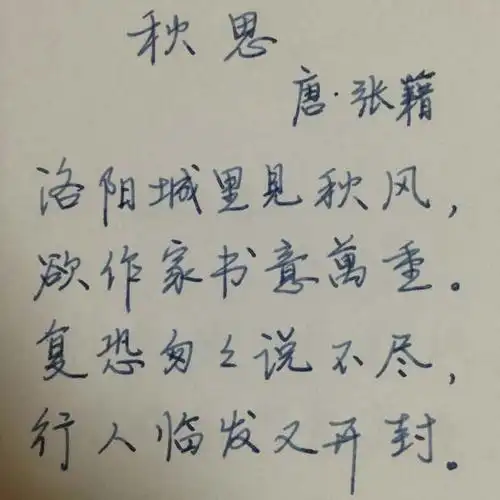 秋思
唐·张籍
洛阳城里见秋风，
欲作家书意萬重。
复恐匆々说不尽，
行人临发又开封。